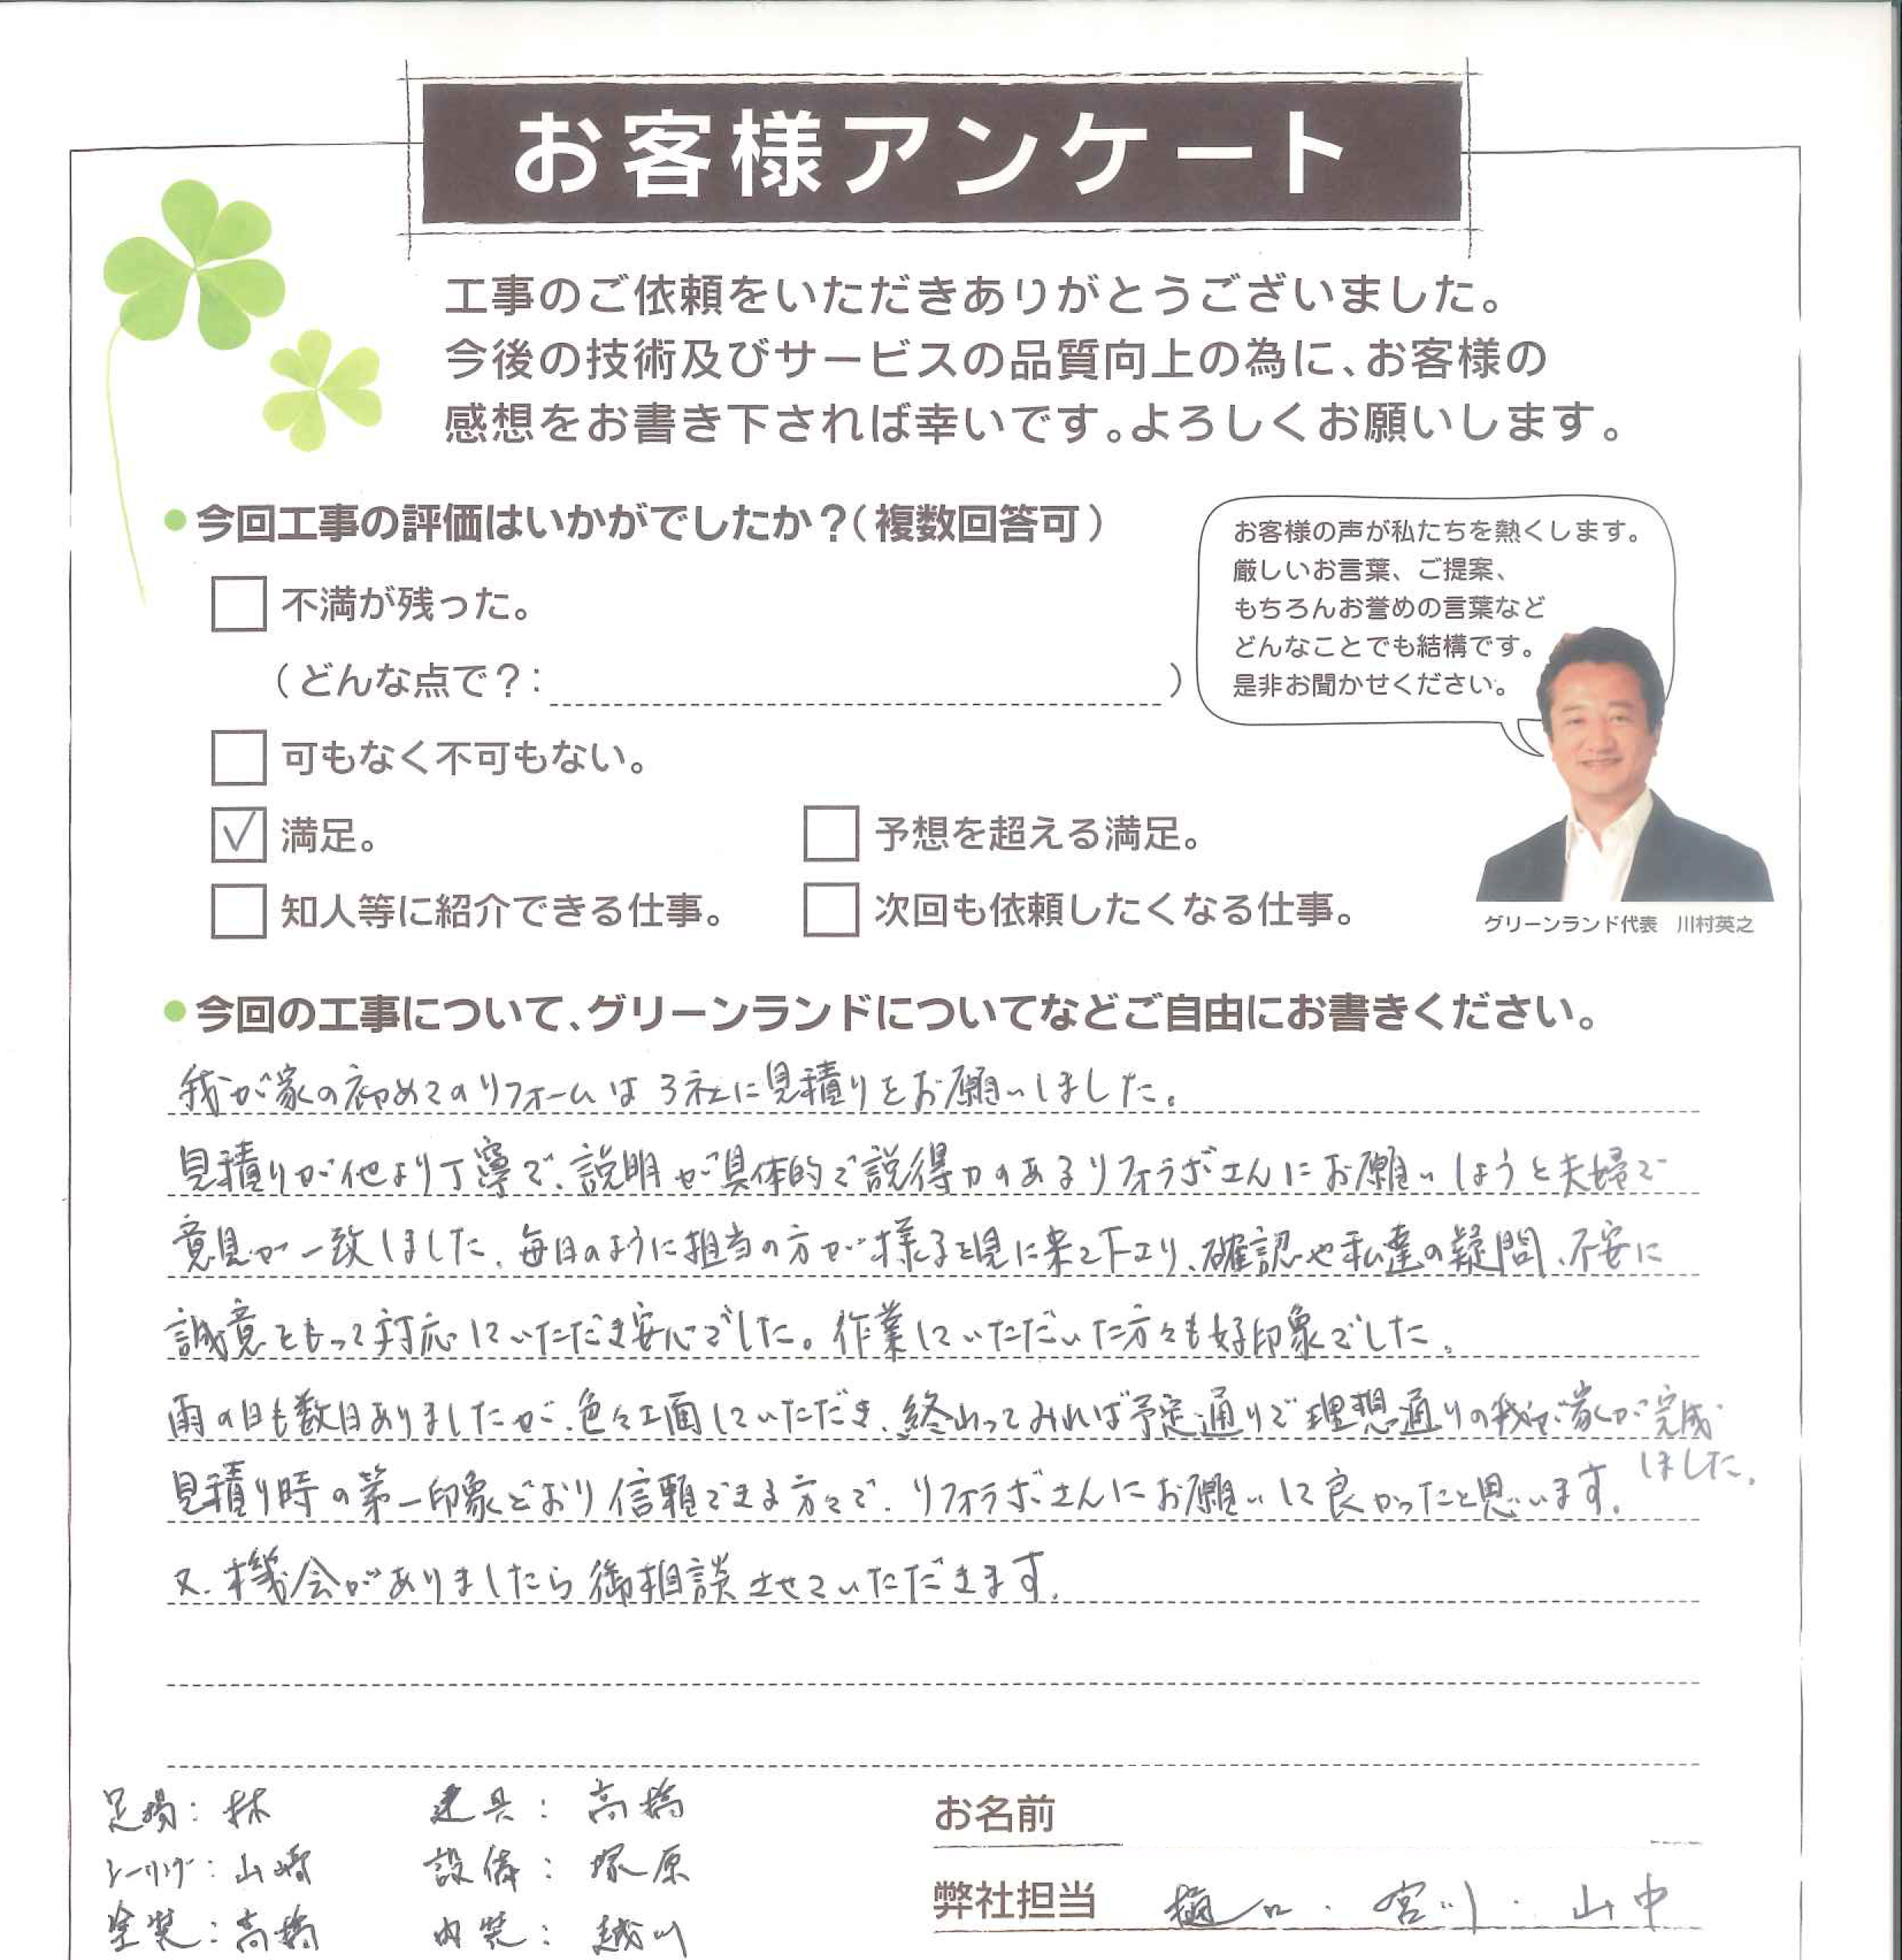 お客様アンケート
工事のご依頼をいただきありがとうございました。
今後の技術及びサービスの品質向上の為に、お客様の
感想をお書き下されば幸いです。よろしくお願いします。
●今回工事の評価はいかがでしたか？（複数回答可）
不満が残った。
（どんな点で？：　）
可もなく不可もない。
満足。
予想を超える満足。
知人等に紹介できる仕事。
次回も依頼したくなる仕事。
お客様の声が私たちを熱くします。
厳しいお言葉、ご提案、
もちろんお誉めの言葉など
どんなことでも結構です。
是非お聞かせください。
グリーンランド代表　川村英之
●今回の工事について、グリーンランドについてなどご自由にお書きください。
我が家の初めてのリフォームは3社に見積りをお願いしました。
見積りが他より丁寧で、説明が具体的で説得力のあるリフォラボさんにお願いしようと夫婦で
意見が一致しました。毎日のように担当の方が様子を見に来て下さり、確認や私達の疑問、不安に
誠意をもって対応していただき安心でした。作業していただいた方々も好印象でした。
雨の日も数日ありましたが、色々工面していただき、終わってみれば予定通りで理想通りの我が家が完成
しました。
見積り時の第一印象どおり信頼できる方々で、リフォラボさんにお願いして良かったと思います。
又、機会がありましたら御相談させていただきます。
足場：林
建具：高橋
シーリング：山崎
設備：塚原
塗装：高橋
内装：越川
お名前
弊社担当　樋口・宮川・山中